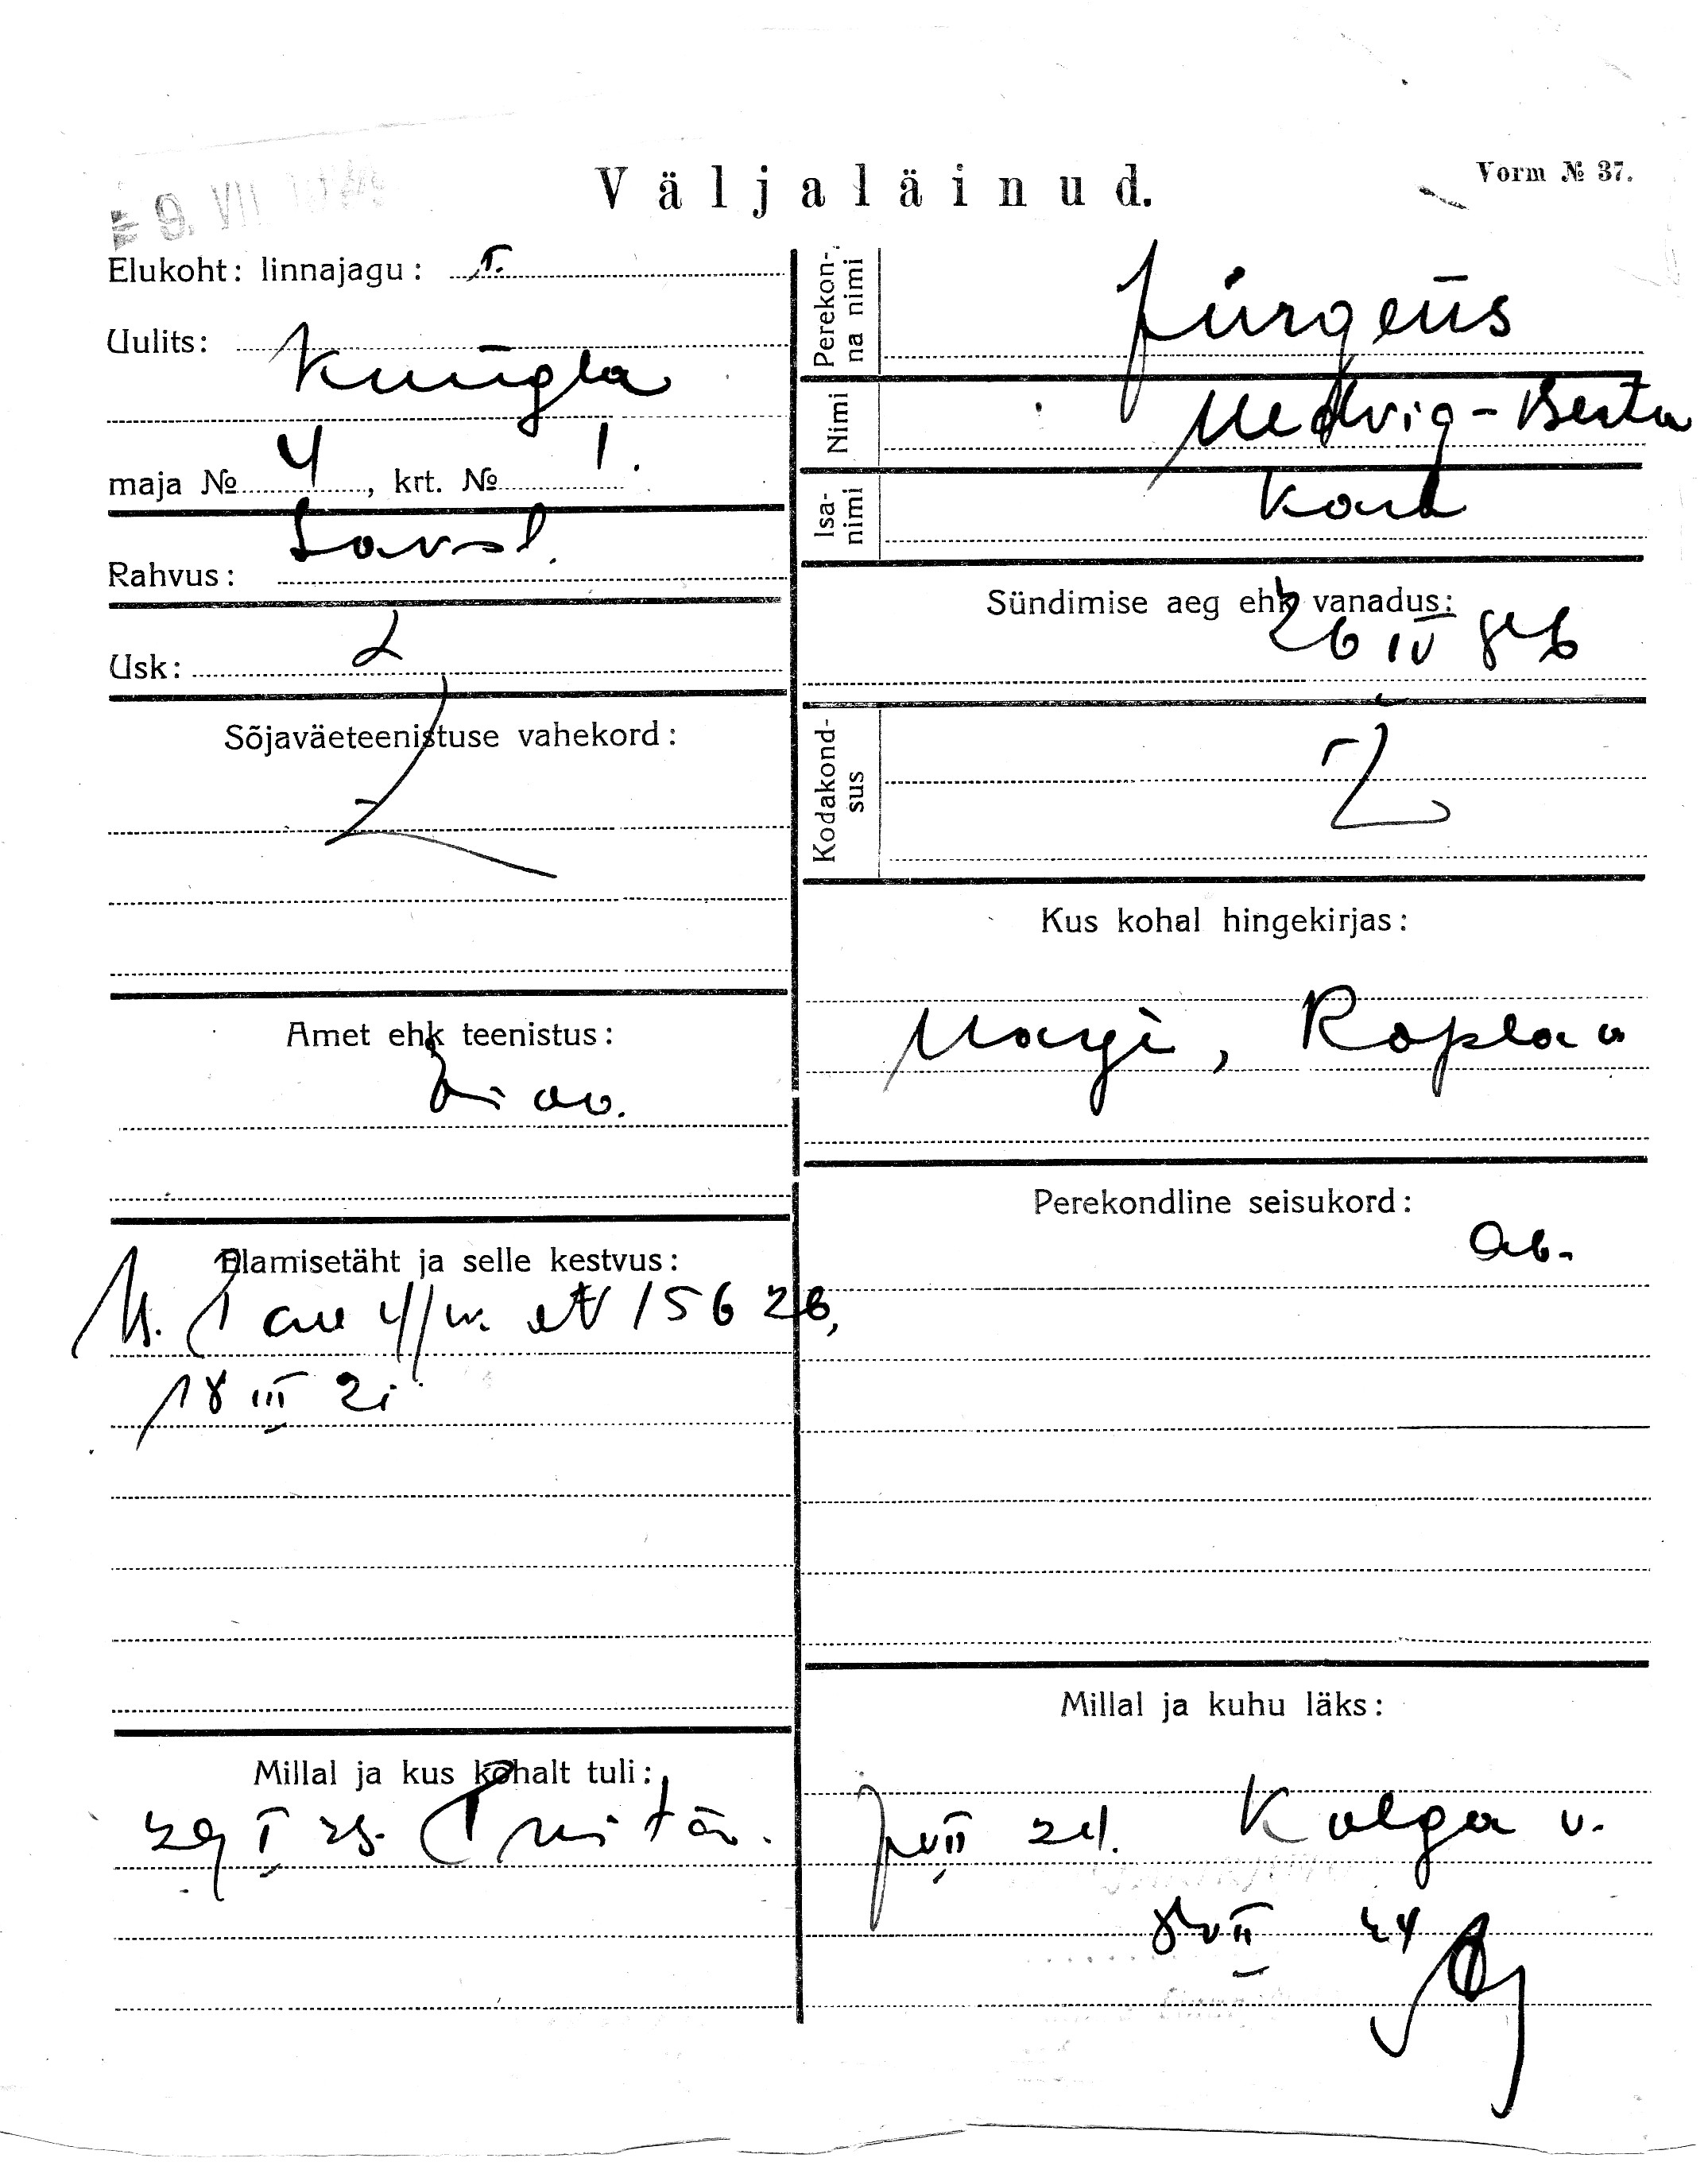 9. VII
Väljaläinud.
Vorm № 37.
Elukoht: linnajagu: I.
Uulits:
Kungla
maja № 4, krt. № 1.
Rahvus:
Usk: L
Sõjaväeteenistuse vahekord:
Amet ehk teenistus:
Elamisetäht ja selle kestvus:
4/ № 15626,
18 III 21
Millal ja kus kohalt tuli:
29 I
Perekonna nimi
Jürgens
Nimi
Hedvig-Berta
Isanimi
Karl
Sündimise aeg ehk vanadus:
26 IV
Kodakondsus
Kus kohal hingekirjas:
Harju, Rapla v
Perekondline seisukord:
Ab.
Millal ja kuhu läks:
VII 24. Kolga v.
8 VII 24